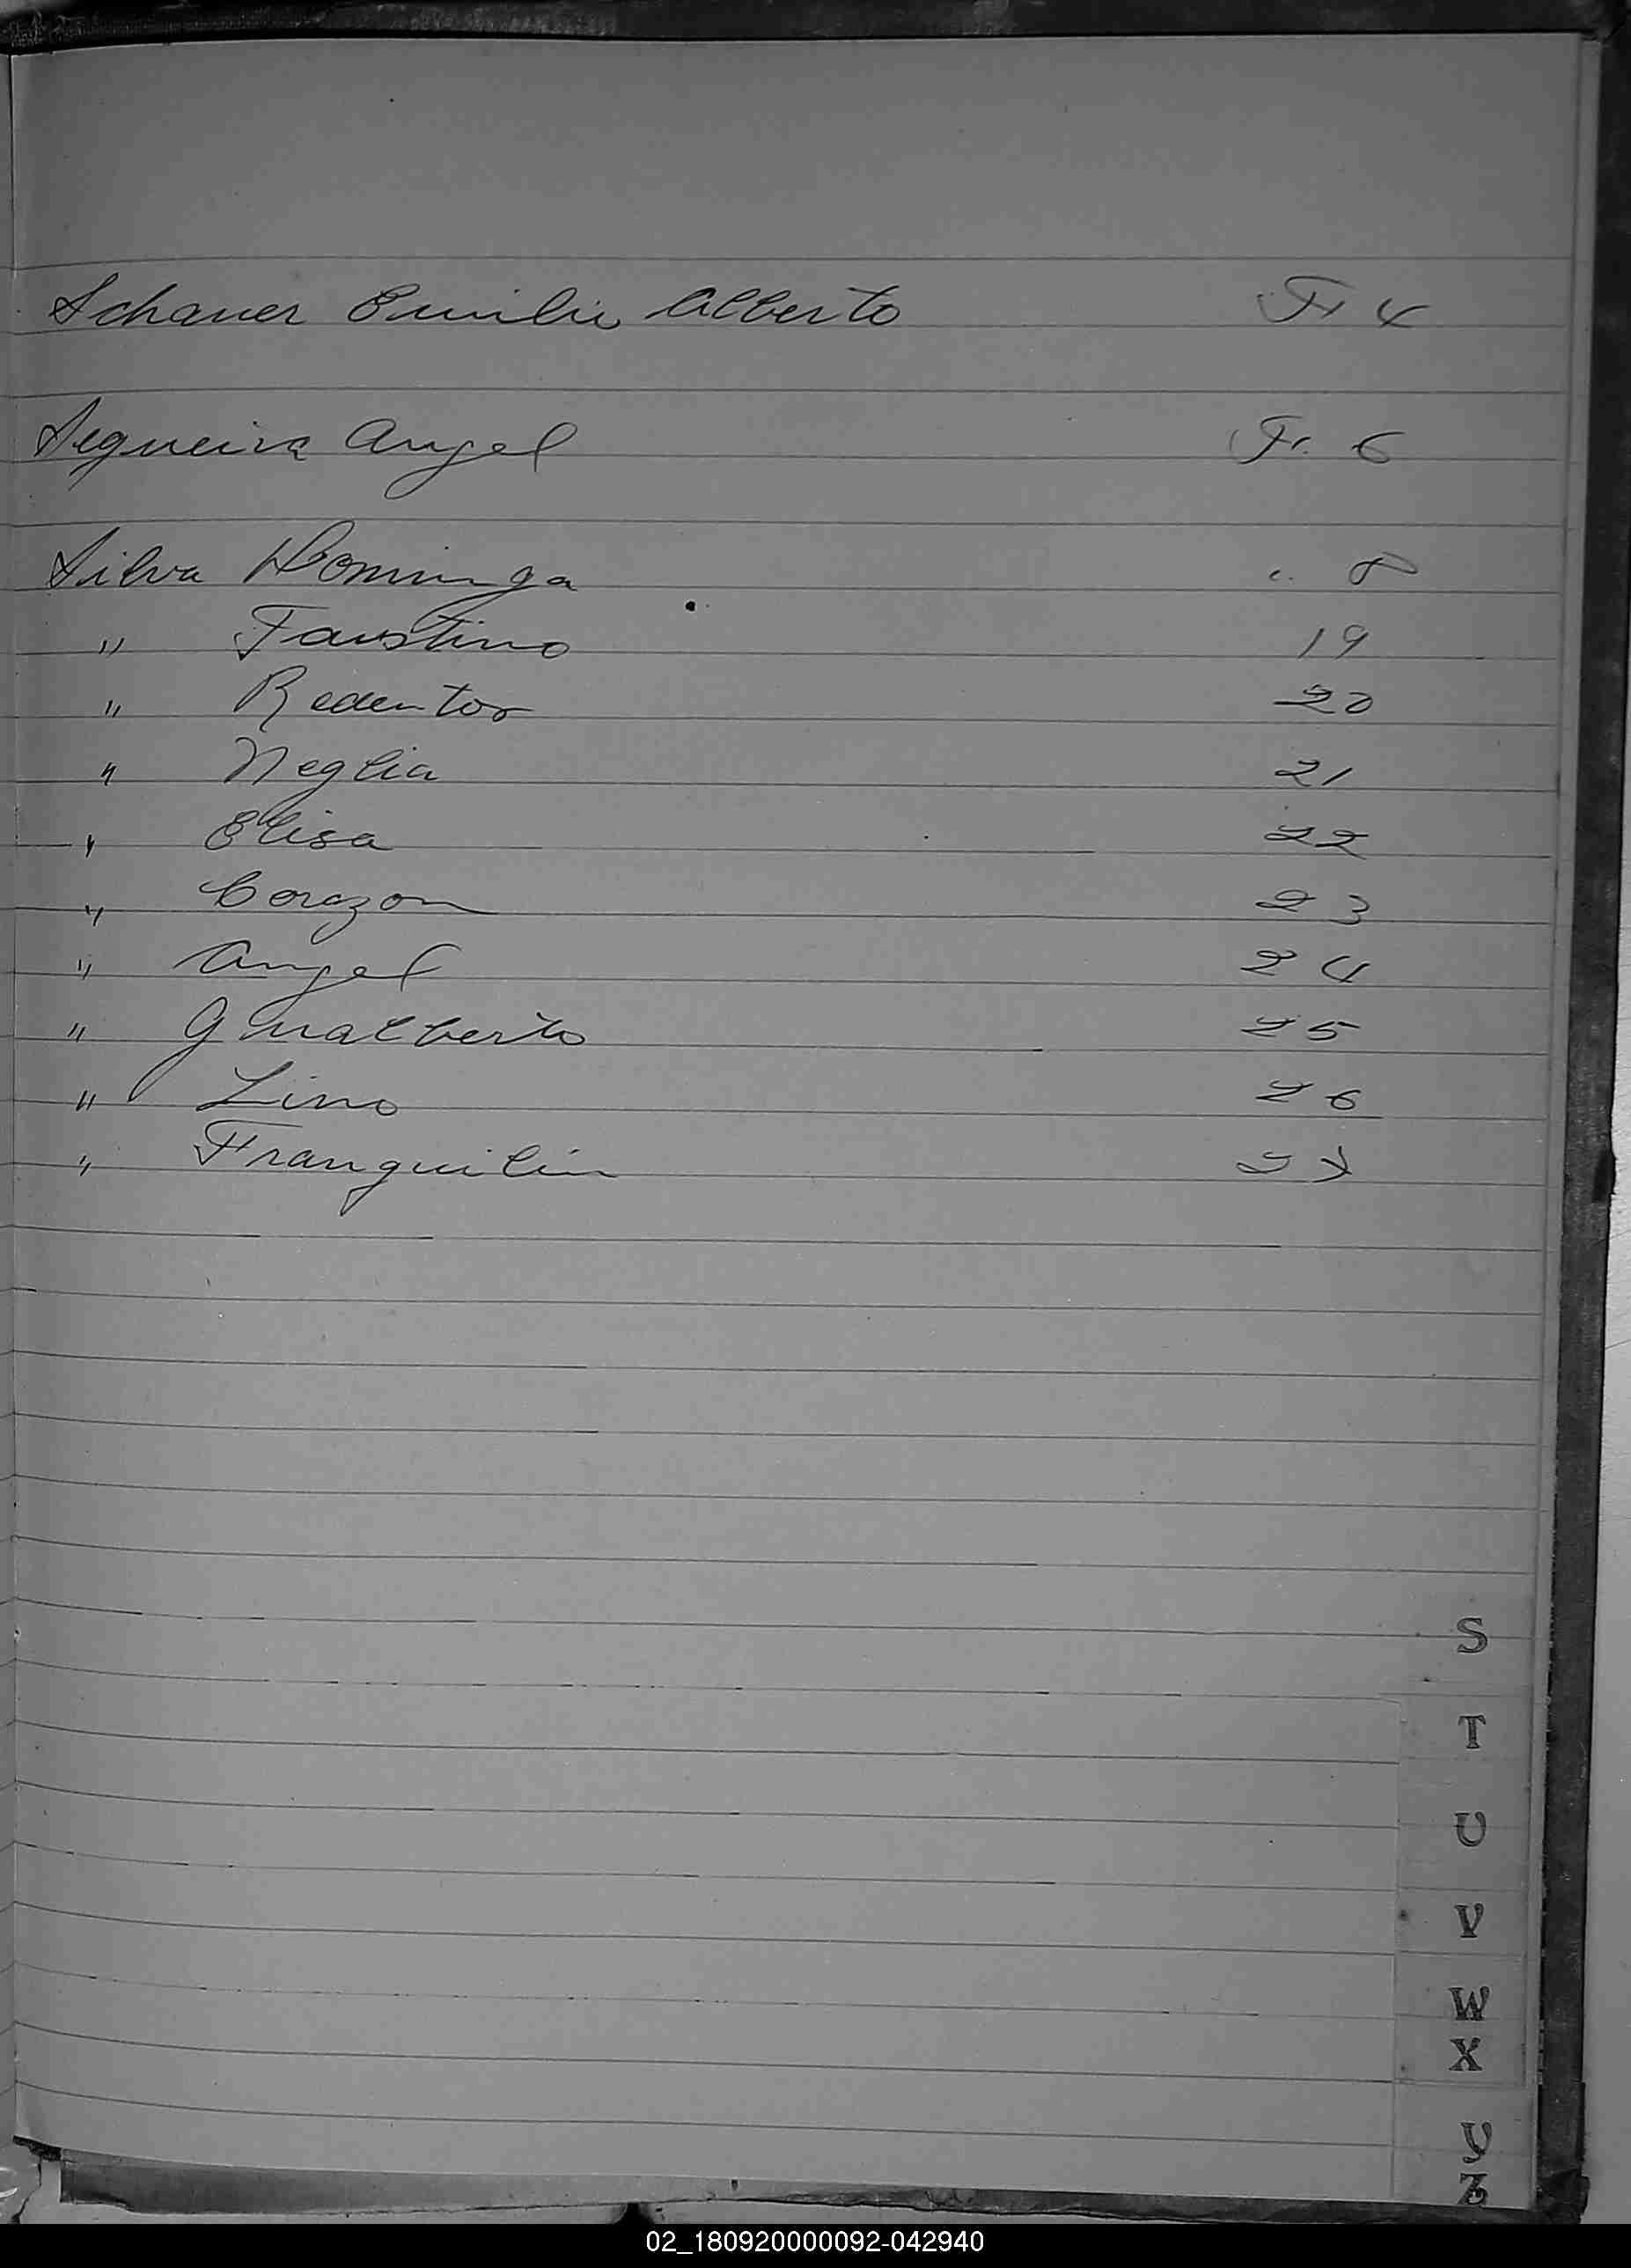 Schauer Emilio Alberto Fr 4
Sequeira Angel Fr. 6
Silva Dominga " 8
" Faustino 19
" Redentor 20
" Neglia 21
" Elisa 22
" Corazon 23
" Angel 24
" Gualberto 25
" Lino 26
" Franquilin 27
S
T
U
V
W
X
Y
Z
02_180920000092-042940